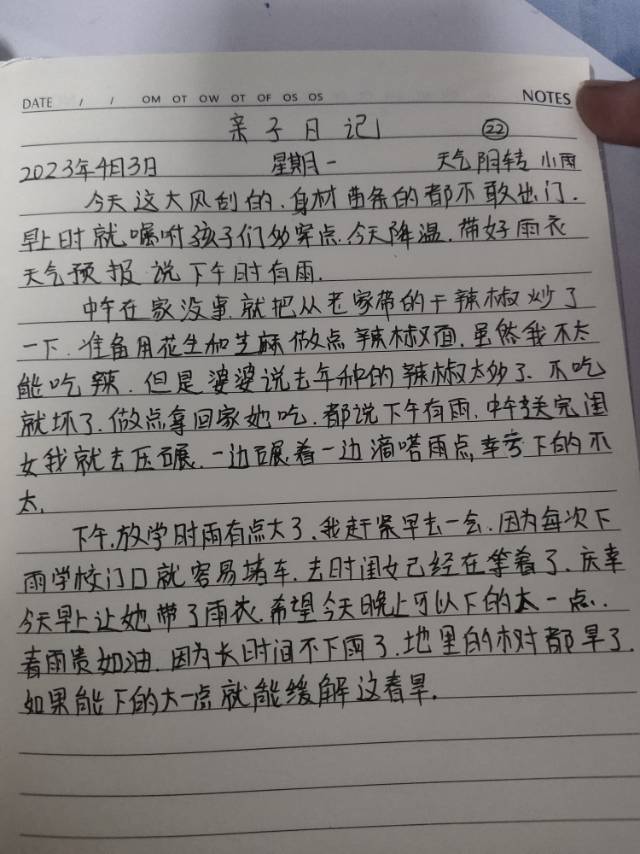 DATE / / OM OT OW OT OF OS OS NOTES
亲子日记 22
2023年4月3日 星期一 天气阴转小雨
今天这大风刮的.身材苗条的都不敢出门.
早上时就嘱咐孩子们多穿点.今天降温.带好雨衣
天气预报说下午时有雨.
中午在家没事.就把从老家带的干辣椒炒了
一下.准备用花生和芝麻做点辣椒面.虽然我不太
能吃辣.但是婆婆说去年种的辣椒太多了.不吃
就坏了.做点拿回家她吃.都说下午有雨.中午送完闺
女我就去压碾.一边碾着一边滴嗒雨点,幸亏下的不
大.
下午.放学时雨有点大了.我赶紧早去一会.因为每次下
雨学校门口就容易堵车.去时闺女已经在等着了.庆幸
今天早上让她带了雨衣.希望今天晚上可以下的大一点..
春雨贵如油.因为长时间不下雨了.地里的树都旱了.
如果能下的大一点就能缓解这春旱.